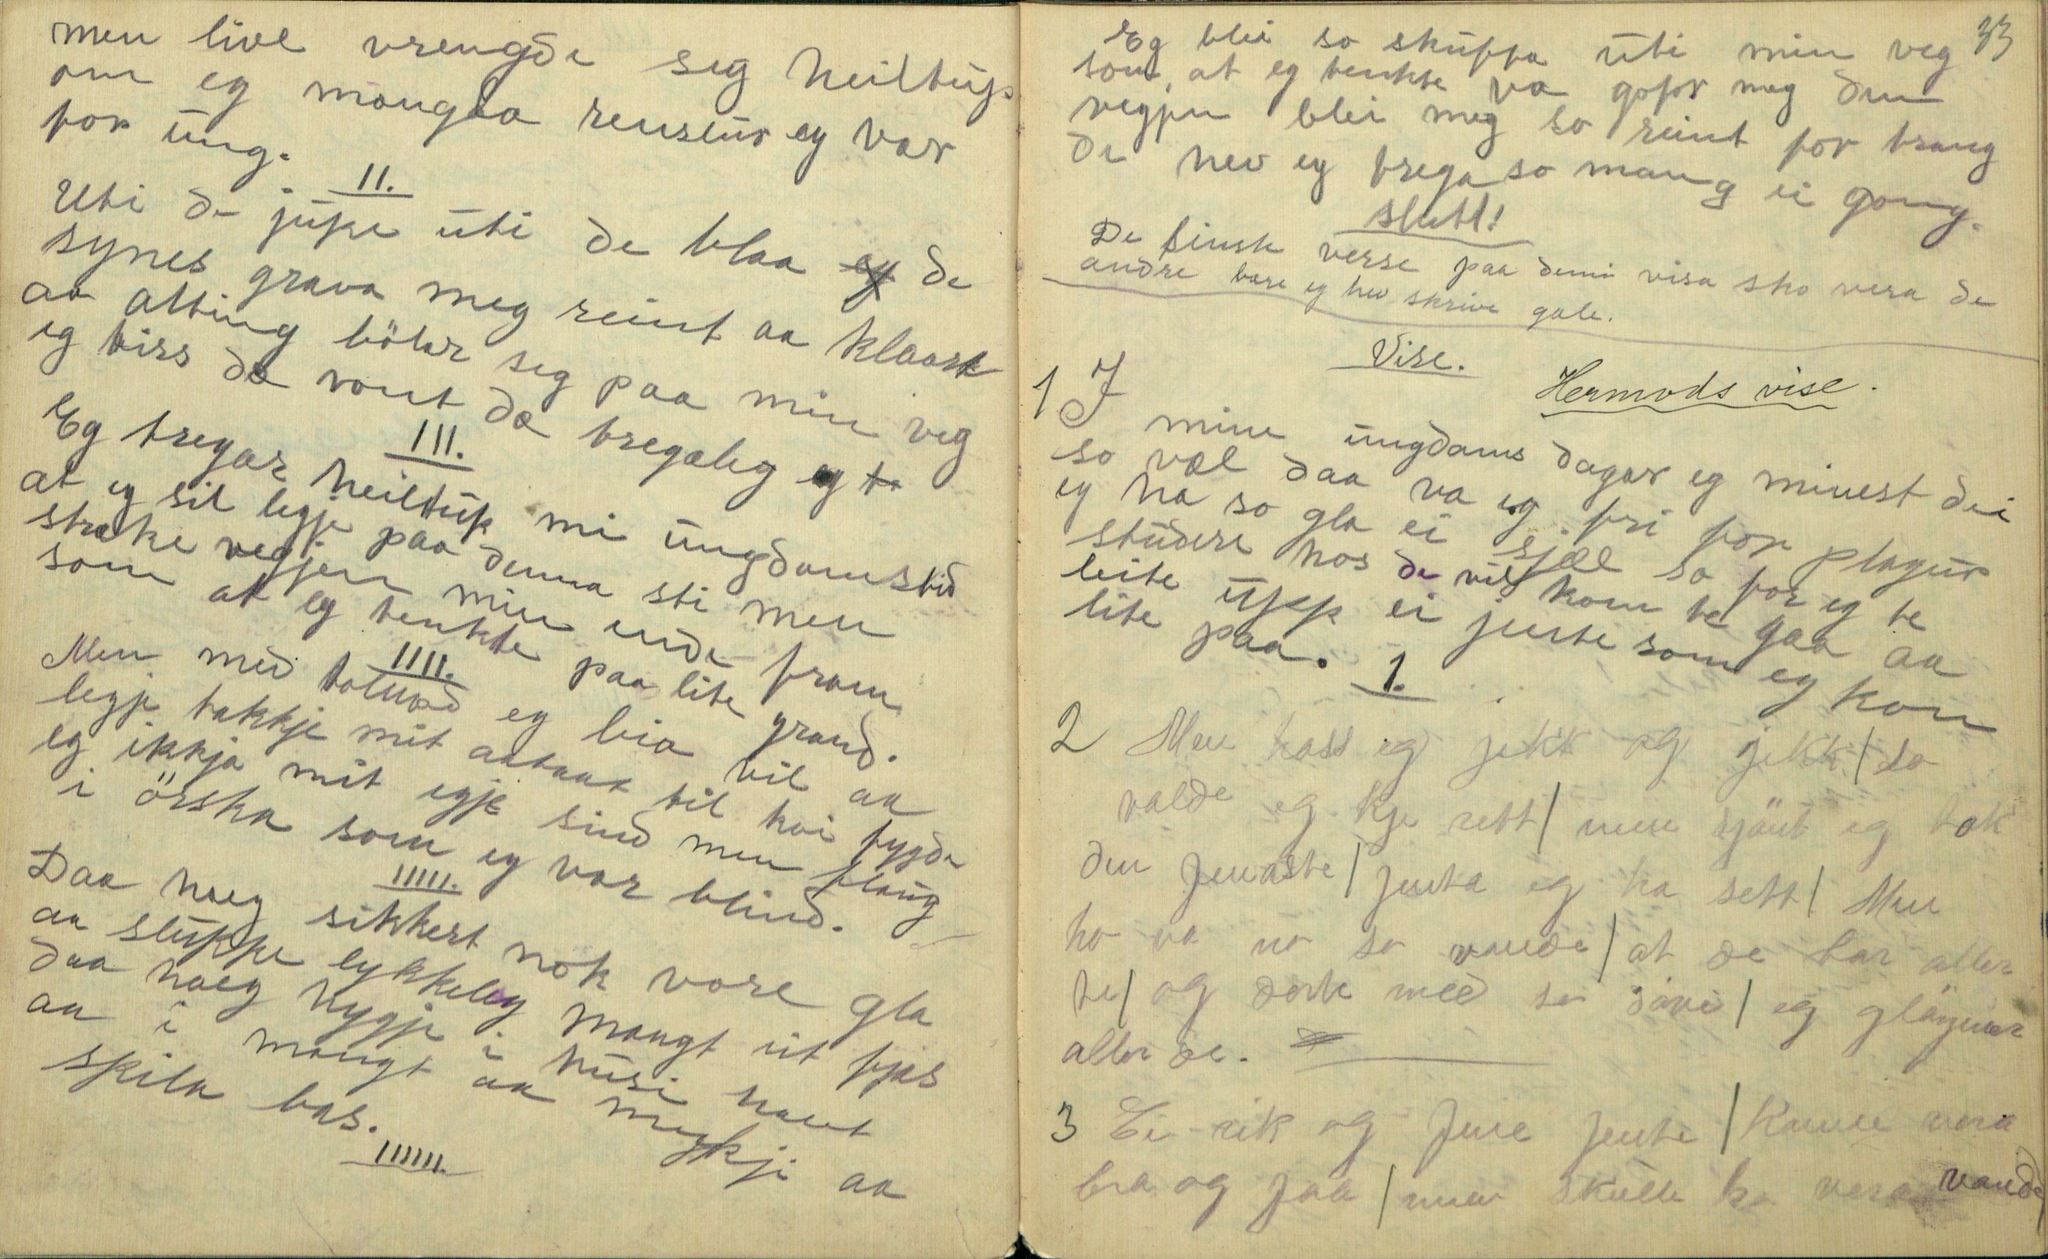 men live vrengde seg heiltup
om eg mangla renslur eg var
for ung.
II.
Uti de jupe uti de blaa de
synes grava meg reint aa klaart
aa alting böter seg paa min veg
eg viss da vont da tregeleg eg
III.
Eg tregar heiltup mi ungdomstid
at eg sil legje paa denna sti men
strake vegjen min ende fram
som at eg tenkte paa lite grand.
IIII.
Men med tolmod eg bia vil aa
legje takkje mit astaat til kvi bygde
eg ikkja mit egje sind men flaug
i örska som eg var blind.
IIIII.
Daa haeg sikkert nok vore gla
aa sluppe lykkeleg mangt eit fjas
daa haeg hygje i husi havt
aa i mangt aa mykji aa
spila bas.
IIIIII.
33
Eg blei so skuffa uti min veg
som, at eg tenkte va gofor meg den
vegjen blei meg so reint for trang
de hev eg trega so mang ei gong.
Slutt!
De sinste verse paa denni visa sko vera de
andre bare eg hev skrive gale.
Vise.
Hermods vise.
1 I mine ungdams dagar eg minest dei
so væl daa va eg fri for plagur
eg ha so gla ei sjæl so for eg te
studere hos de vil kom te gaa aa
leite upp ei jente som eg kan
lite paa.
1.
2 Men hoss eg jekk og jekk / so
valde eg kje rett / men sjönt eg tok
den jenaste / jenta eg ha sett / Men
ho va no so vande / at de bar aller
te / og derte med so / eg gläymer
aller de.
3 Ei rik og fine jente / kunne vera
bra og faa / men skulle ho vera vande /